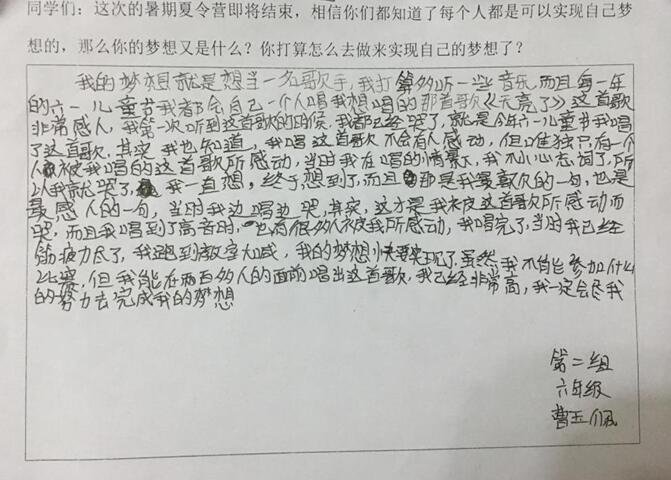 同学们：这次的暑期夏令营即将结束，相信你们都知道了每个人都是可以实现自己梦
想的，那么你的梦想又是什么？你打算怎么去做来实现自己的梦想了？
我的梦想就是想当一名歌手，我打算多听一些音乐，而且每一年
的六一儿童节我都会自己一个人唱我想唱的那首歌《天亮了》这首歌
非常感人，我第一次听到这首歌的时候，我都已经哭了，就是今年六一儿童节我唱
了这首歌，其实我也知道，我唱这首歌不会有人感动，但唯独只有一个
人被我唱的这首歌所感动，当时我在唱的情景下，我不小心忘词了，所
以我就哭了，我一直想，终于想到了，而且那是我最喜欢的一句，也是
最感人的一句，当时我边唱边哭，其实，这才是我被这首歌所感动而
哭，而且我唱到了高音时，也有很多人被我所感动，我唱完了，当时我已经
筋疲力尽了，我跑到教室大喊，我的梦想快要实现了，虽然我不能参加什么
比赛，但我能在两百多人的面前唱出这首歌，我已经非常高，我一定会尽我
的努力去完成我的梦想
第二组
六年级
曹玉佩